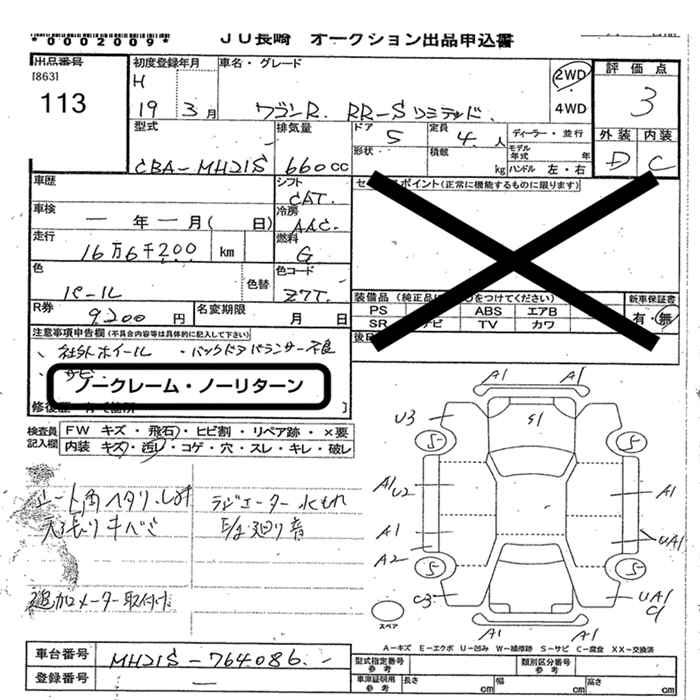 *0002009*
JU長崎 オークション出品申込書
出品番号
[863]
113
初度登録年月
H
19 3月
車名・グレード
ワゴンR RR-S リミテッド
2WD
4WD
評価点
3
外装 内装
D C
型式
CBA-MH21S
排気量
660CC
ドア
5
定員
4人
形状
積載
kg
ディーラー・並行
モデル年式 年
ハンドル 左・右
車歴
シフト
CAT.
車検
一年一月( 日)
冷房
AAC.
走行
16万6千200 km
燃料
G
色
パール
色替
色コード
Z7T.
R券
9200円
名変期限
月 日
ポイント(正常に機能するものに限ります)
装備品
PS ABS エアB
SR TV カワ
新車保証書
有・無
注意事項申告欄(不具合内容等は具体的に記入して下さい)
、社外ホイール ・バックドアバランサー不良
・サビ
ノークレーム・ノーリターン
検査員記入欄
FW キズ・飛石・ヒビ割・リペア跡・×要
内装 キズ・汚レ・コゲ・穴・スレ・キレ・破レ
シート角ヘタリ、しみ
天張りキバミ
ラジエーター水もれ
E/g廻り音
追加メーター取付け
A1 A1
U3 S1
S S
A1 U2 A1
A1 UA1
A2
S S
C3 UA1
A1 A1
スペア
A-キズ E-エクボ U-凹み W-補修跡 S-サビ C-腐食 XX-交換済
車台番号
MH21S-764086
登録番号
一
型式指定番号 参考
類別区分番号 参考
車庫証明用 参考 長さ cm 幅 cm 高さ cm